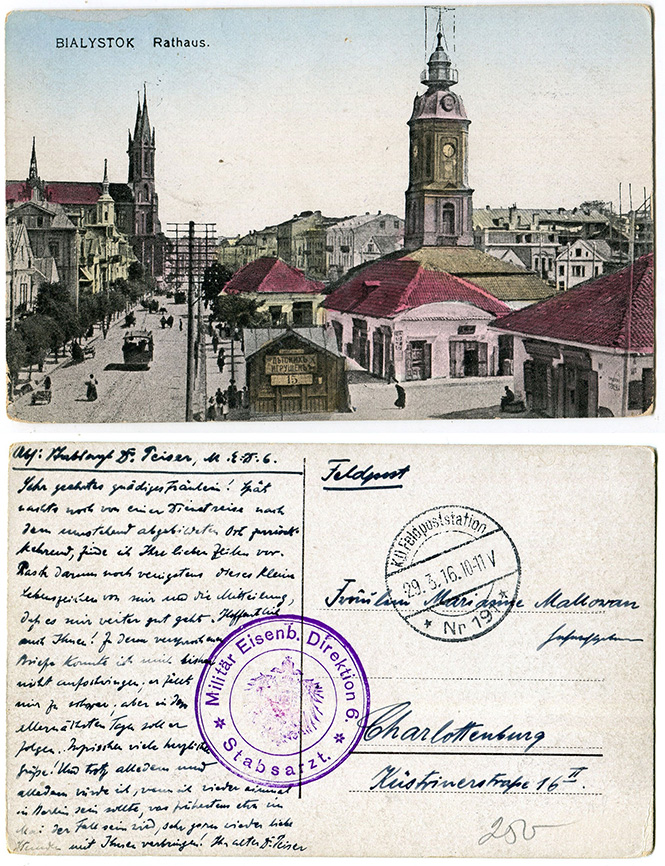 BIALYSTOK Rathaus.
ДѢТСКИХЪ
ИГРУШЕКЪ
15
Abs: Stabsarzt Dr. Peiser, M.E.D. 6.
Sehr geehrtes gnädiges Fräulein! Spät
nachts noch von einer Dienstreise nach
dem umstehend abgebildeten Ort zurück-
kehrend, finde ich Ihre lieben Zeilen vor.
Rasch darum noch wenigstens dieses kleine
Lebenszeichen von mir und die Mitteilung,
daß es mir weiter gut geht. Hoffentlich
auch Ihnen! Zu dem versprochenen
Briefe konnte ich mich bisher
nicht aufschwingen, er fällt
mir zu schwer, aber in den
allernächsten Tagen soll er
folgen. Inzwischen viele herzliche
Grüße! Und trotz alledem und
alledem würde ich, wenn ich wieder einmal
in Berlin sein sollte, was frühstens etwa im
Mai der Fall sein wird, sehr gern wieder liebe
Stunden mit Ihnen verbringen! Ihr alter Dr. Peiser
Feldpost
K.D. Feldpoststation
29.3.16.10-11V
* Nr 191 *
Fräulein Marianne Mallowan
Militär Eisenb. Direktion 6.
* Stabsarzt. *
Charlottenburg
Küstrinerstraße 16 II
250